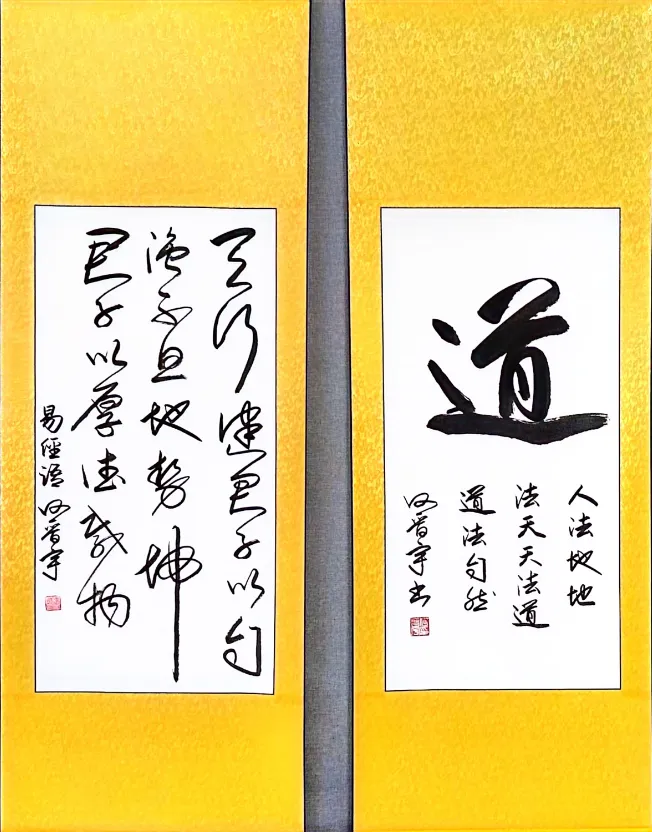 道
人法地地
法天天法道
道法自然
晋宇书
天行健君子以自
强不息地势坤
君子以厚德载物
易經语 晋宇